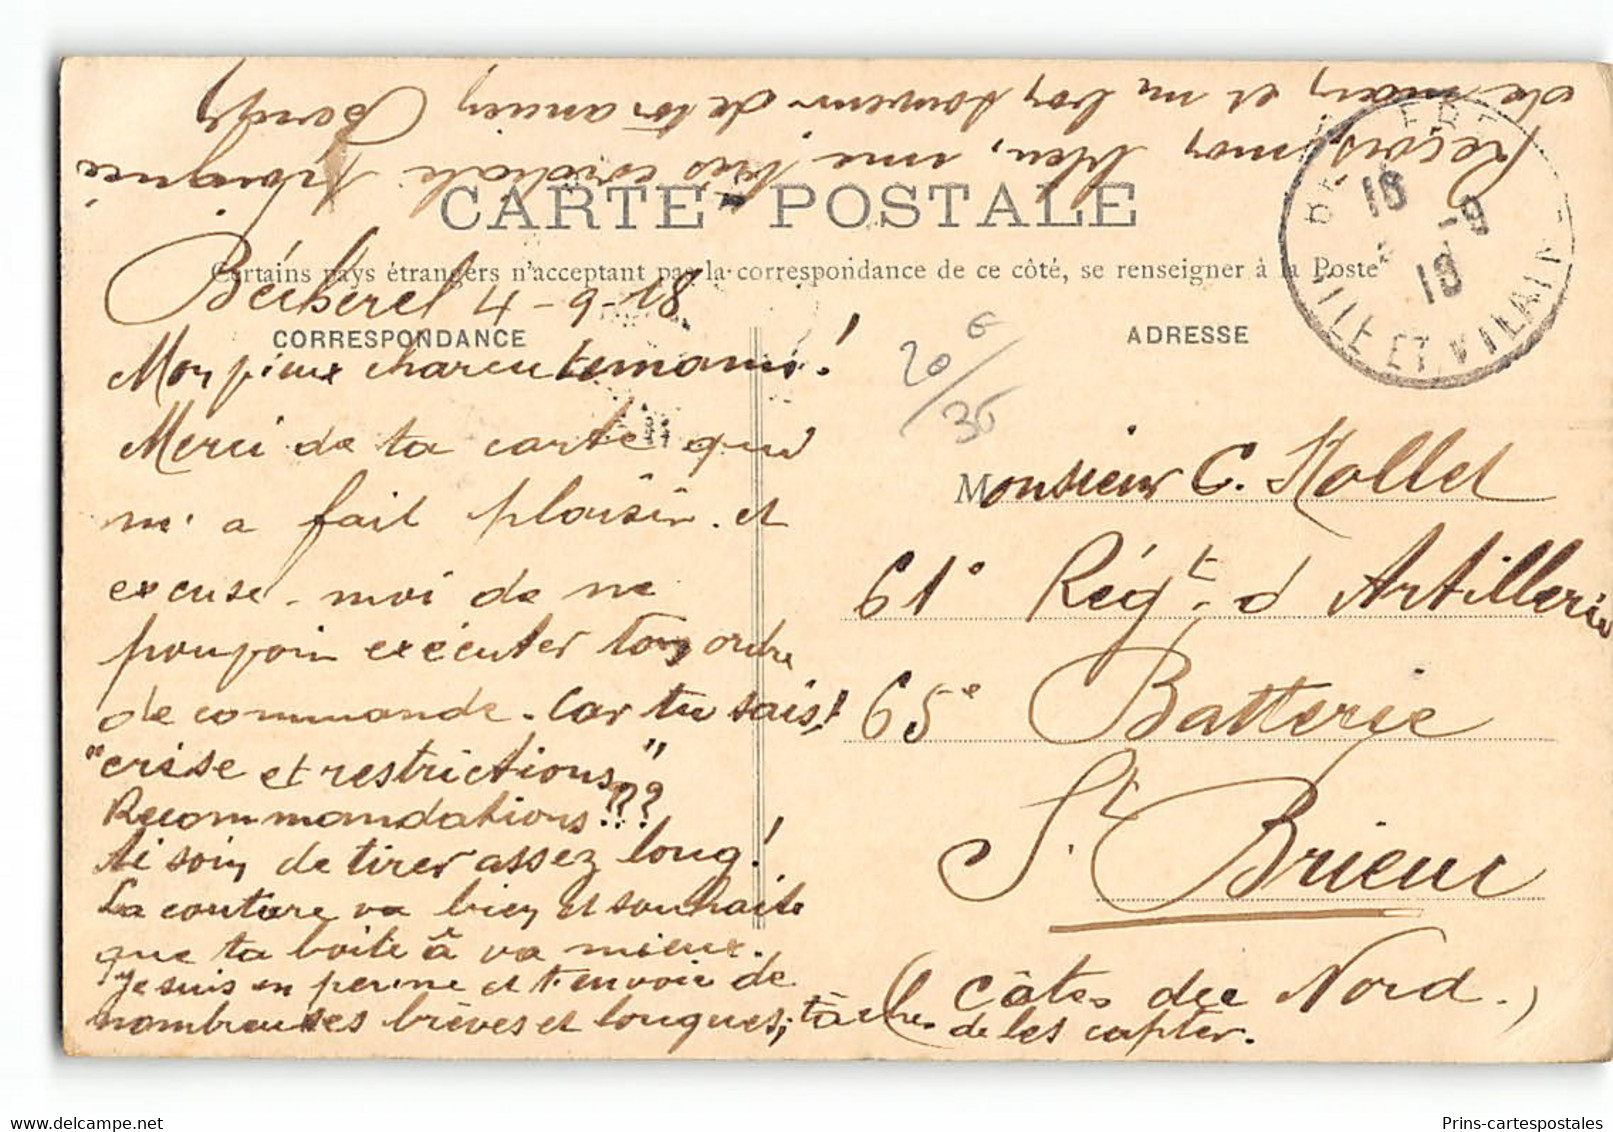 CARTE POSTALE
Certains pays étrangers n'acceptant pas la correspondance de ce côté, se renseigner à la Poste
CORRESPONDANCE
ADRESSE
Bécherel 4-9-18
Mon vieux
Merci de ta carte qui
m'a fait plaisir et
excuse-moi de ne
pouvoir exécuter ton ordre
de commande. Car tu sais!
"crise et restrictions"
Recommandations!??
Ai soin de tirer assez long!
La couture va bien et souhaite
que ta boite à va mieux.
Je suis en panne et t'envoie de
nombreuses brèves et longues; tâche de les capter.
Reçois, mon vieux, une très cordiale poignée
de main et un bon souvenir de ton ancien
Monsieur C. Hollet
61e Régt. d'Artillerie
65e Batterie
St. Brieuc
(Côtes du Nord.)
20/36
BECHEREL
18 -9
18
ILLE ET VILAINE
Prins-cartespostales